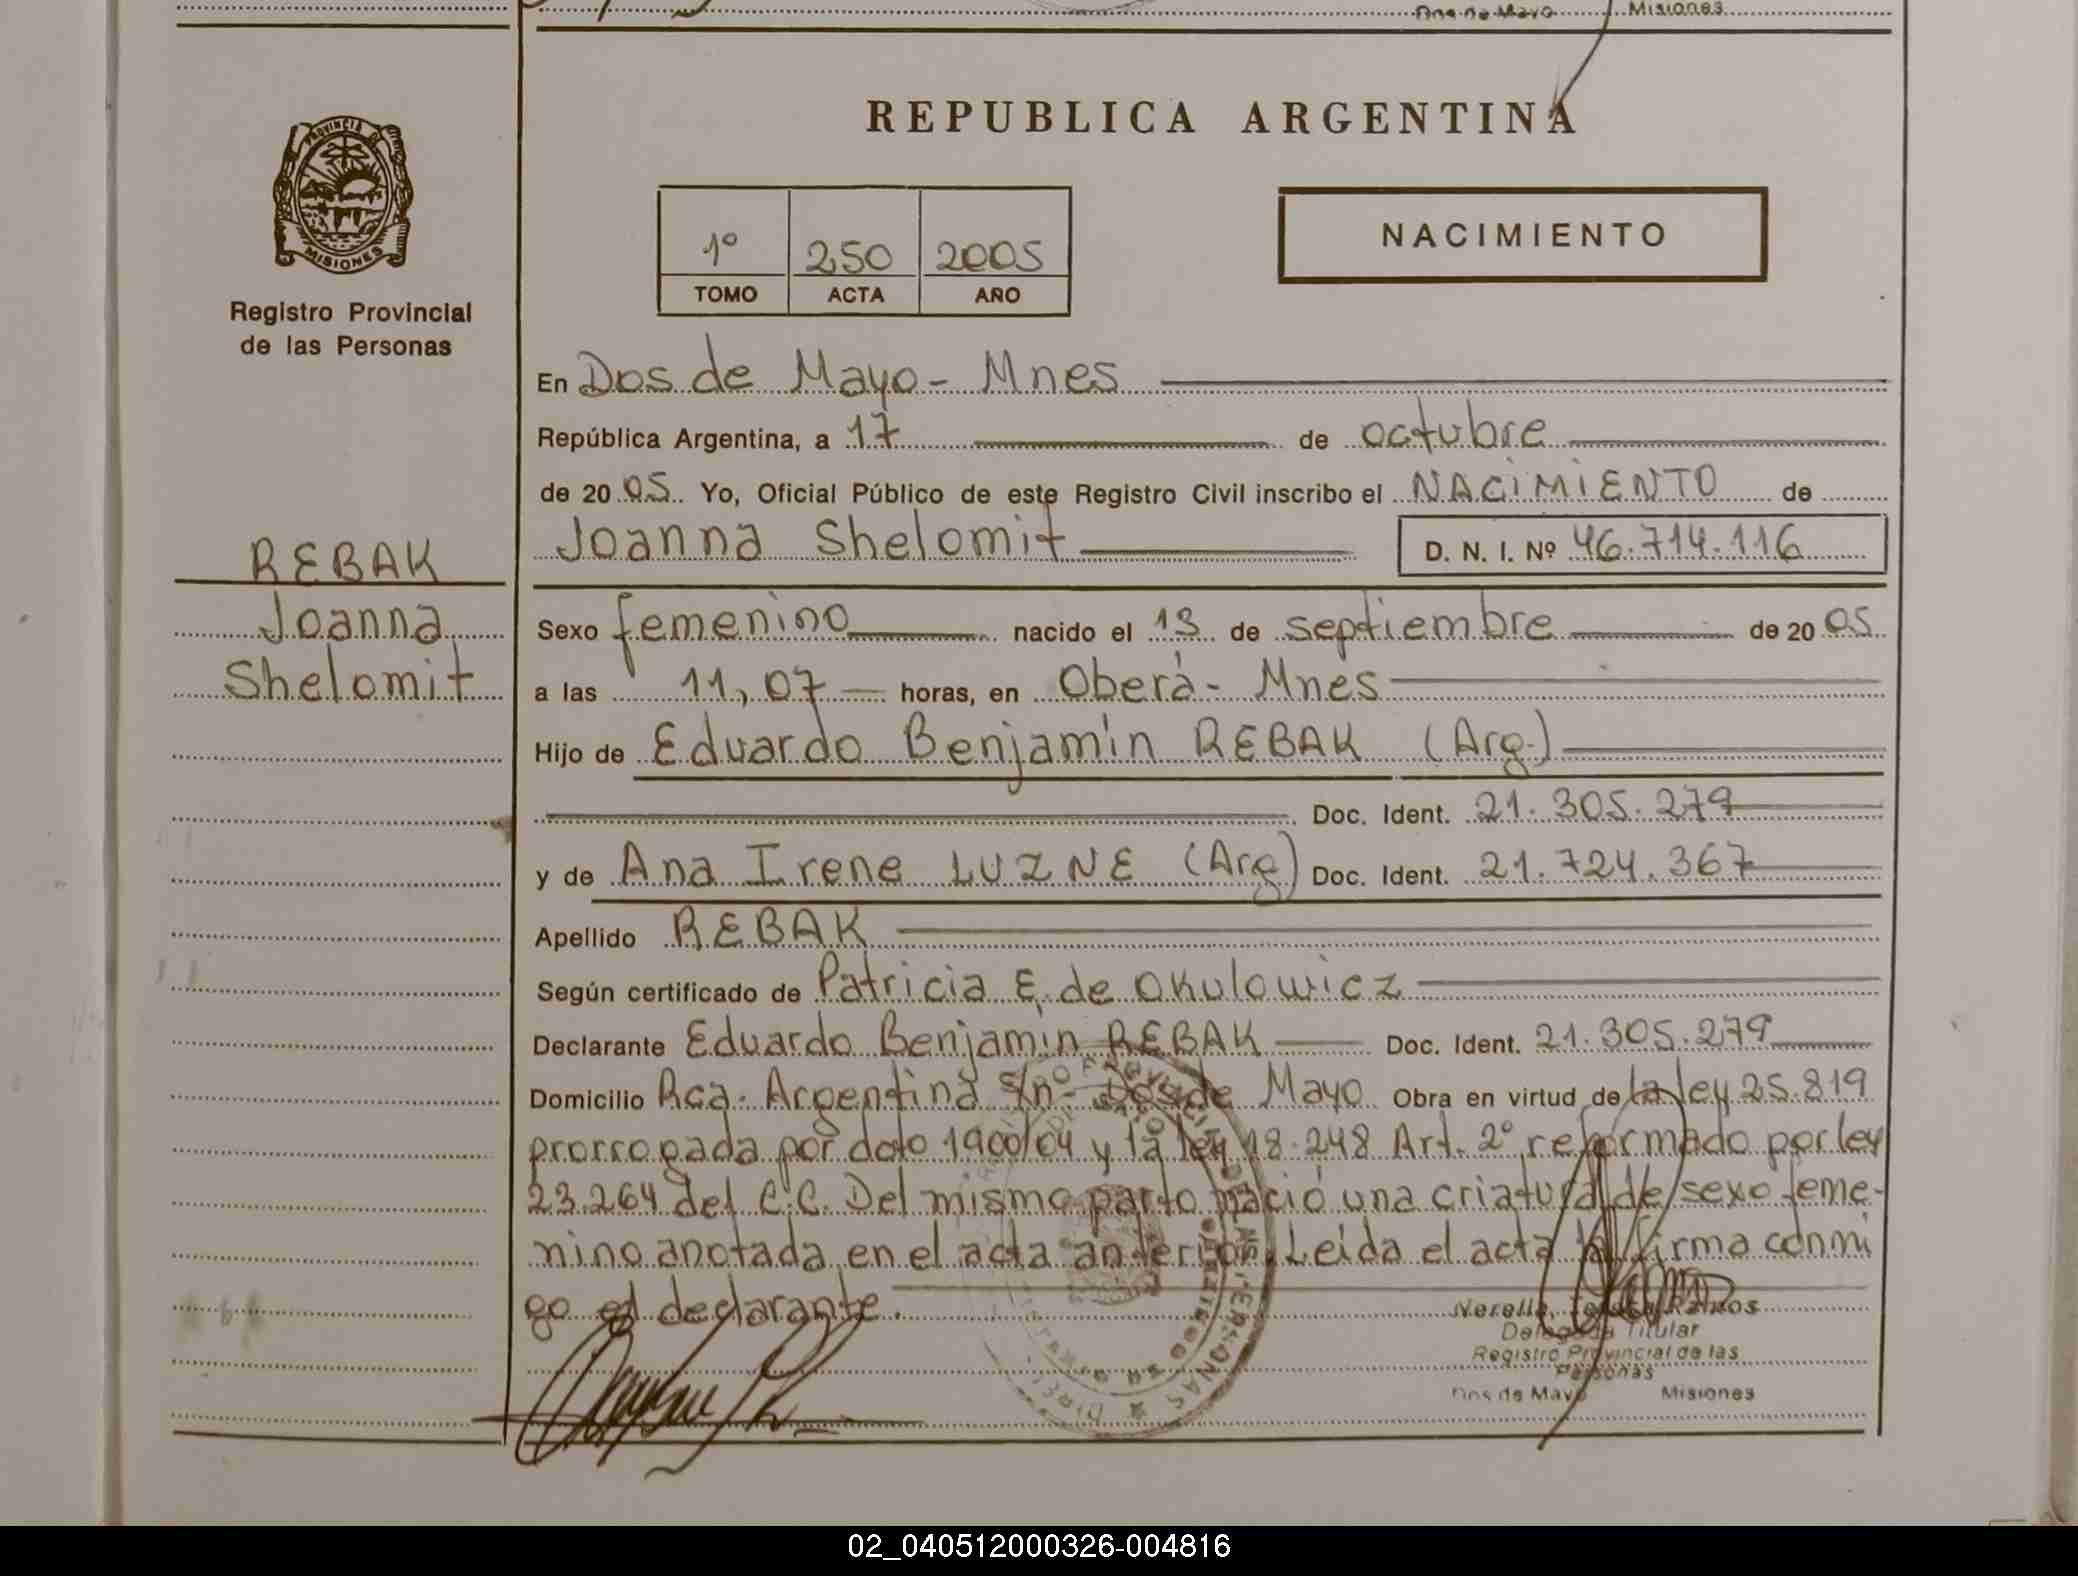 Dos de Mayo Misiones
PROVINCIA DE
MISIONES
Registro Provincial
de las Personas
REBAK
Joanna
Shelomit
REPUBLICA ARGENTINA
1º 250 2005
TOMO ACTA AÑO
NACIMIENTO
En Dos de Mayo - Mnes
República Argentina, a 17 de octubre
de 20 05 Yo, Oficial Público de este Registro Civil inscribo el NACIMIENTO de
Joanna Shelomit D. N. I. Nº 46.714.116
Sexo femenino nacido el 13 de septiembre de 20 05
a las 11,07 horas, en Oberá - Mnes
Hijo de Eduardo Benjamín REBAK (Arg.)
Doc. Ident. 21.305.279
y de Ana Irene LUZNE (Arg) Doc. Ident. 21.724.367
Apellido REBAK
Según certificado de Patricia E. de Okulowicz
Declarante Eduardo Benjamín REBAK Doc. Ident. 21.305.279
Domicilio Rca. Argentina S/nº - Dos de Mayo Obra en virtud de la ley 25.819
prorrogada por dcto 1900/04 y la ley 18.248 Art. 2º reformado por ley
23.264 del C.C. Del mismo parto nació una criatura de sexo feme-
nino anotada en el acta anterior. Leída el acta firma conmi
go el declarante.
Ramos
Delegada Titular
Registro Provincial de las
Personas
Dos de Mayo Misiones
02_040512000326-004816